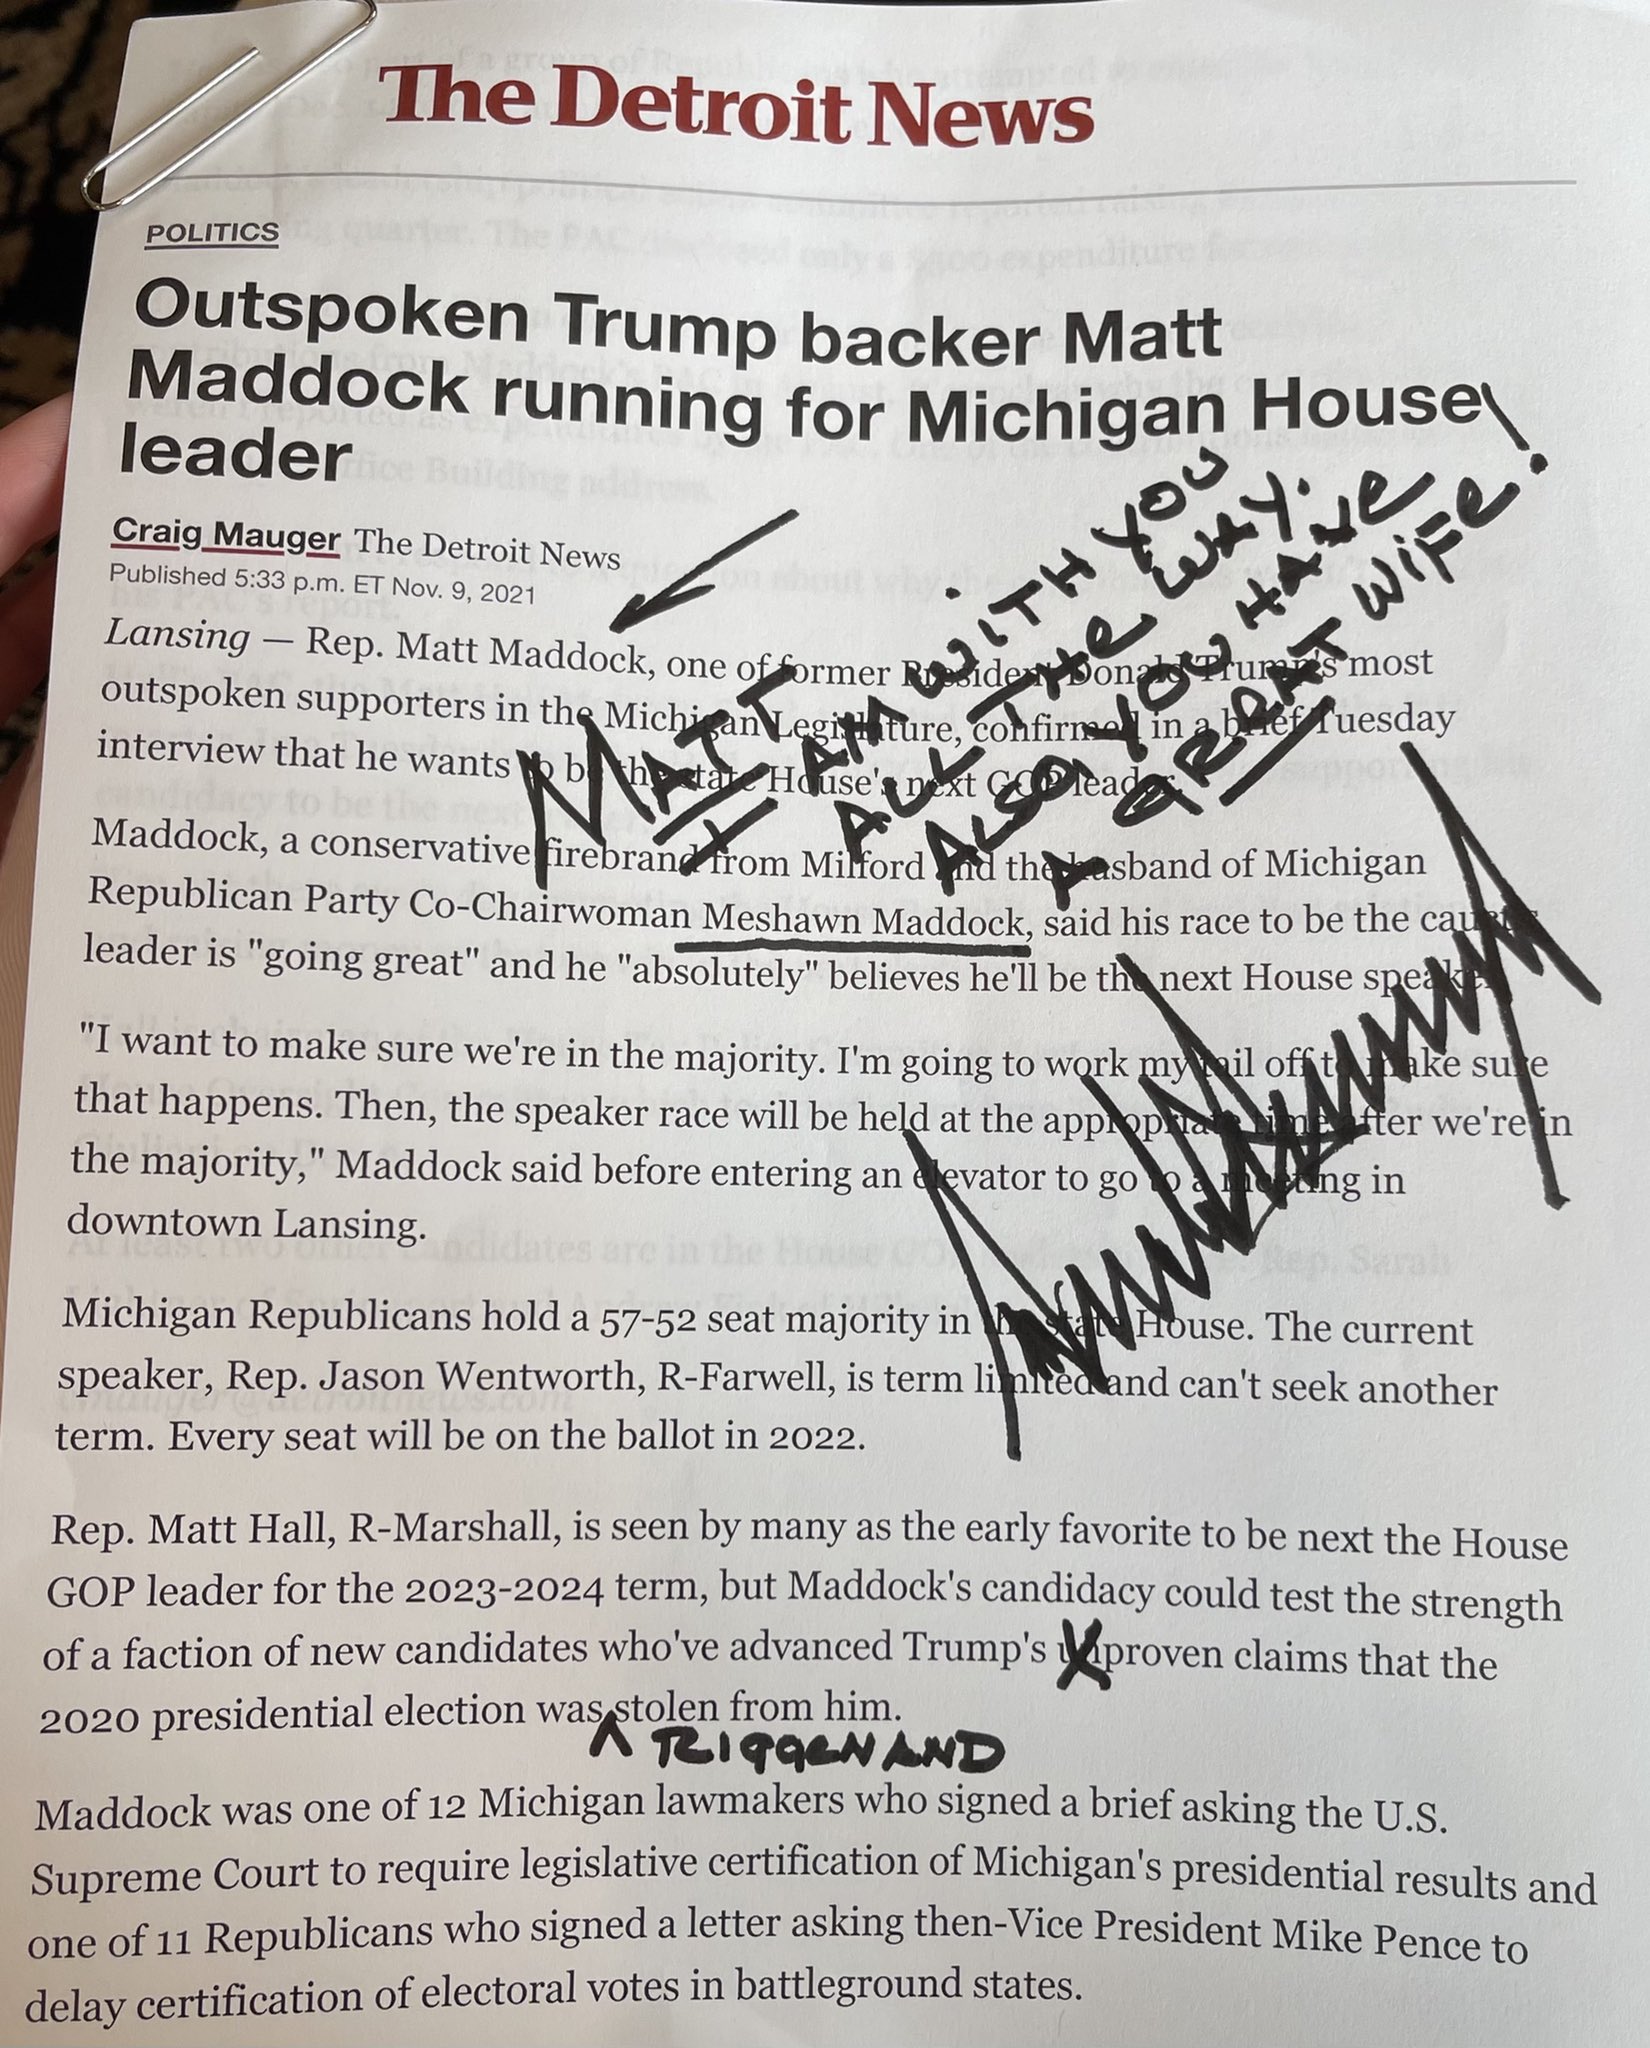 The Detroit News
POLITICS
Outspoken Trump backer Matt
Maddock running for Michigan House
leader
Craig Mauger The Detroit News
Published 5:33 p.m. ET Nov. 9, 2021
MATT
I AM WITH YOU
ALL THE WAY.
ALSO, YOU HAVE
A GREAT WIFE!
Lansing — Rep. Matt Maddock, one of former President Donald Trump's most
outspoken supporters in the Michigan Legislature, confirmed in a brief Tuesday
interview that he wants to be the state House's next GOP leader.
Maddock, a conservative firebrand from Milford and the husband of Michigan
Republican Party Co-Chairwoman Meshawn Maddock, said his race to be the caucus
leader is "going great" and he "absolutely" believes he'll be the next House speaker.
"I want to make sure we're in the majority. I'm going to work my tail off to make sure
that happens. Then, the speaker race will be held at the appropriate time after we're in
the majority," Maddock said before entering an elevator to go to a meeting in
downtown Lansing.
Michigan Republicans hold a 57-52 seat majority in the state House. The current
speaker, Rep. Jason Wentworth, R-Farwell, is term limited and can't seek another
term. Every seat will be on the ballot in 2022.
Rep. Matt Hall, R-Marshall, is seen by many as the early favorite to be next the House
GOP leader for the 2023-2024 term, but Maddock's candidacy could test the strength
of a faction of new candidates who've advanced Trump's unproven claims that the
2020 presidential election was stolen from him.
RIGGEN AND
Maddock was one of 12 Michigan lawmakers who signed a brief asking the U.S.
Supreme Court to require legislative certification of Michigan's presidential results and
one of 11 Republicans who signed a letter asking then-Vice President Mike Pence to
delay certification of electoral votes in battleground states.